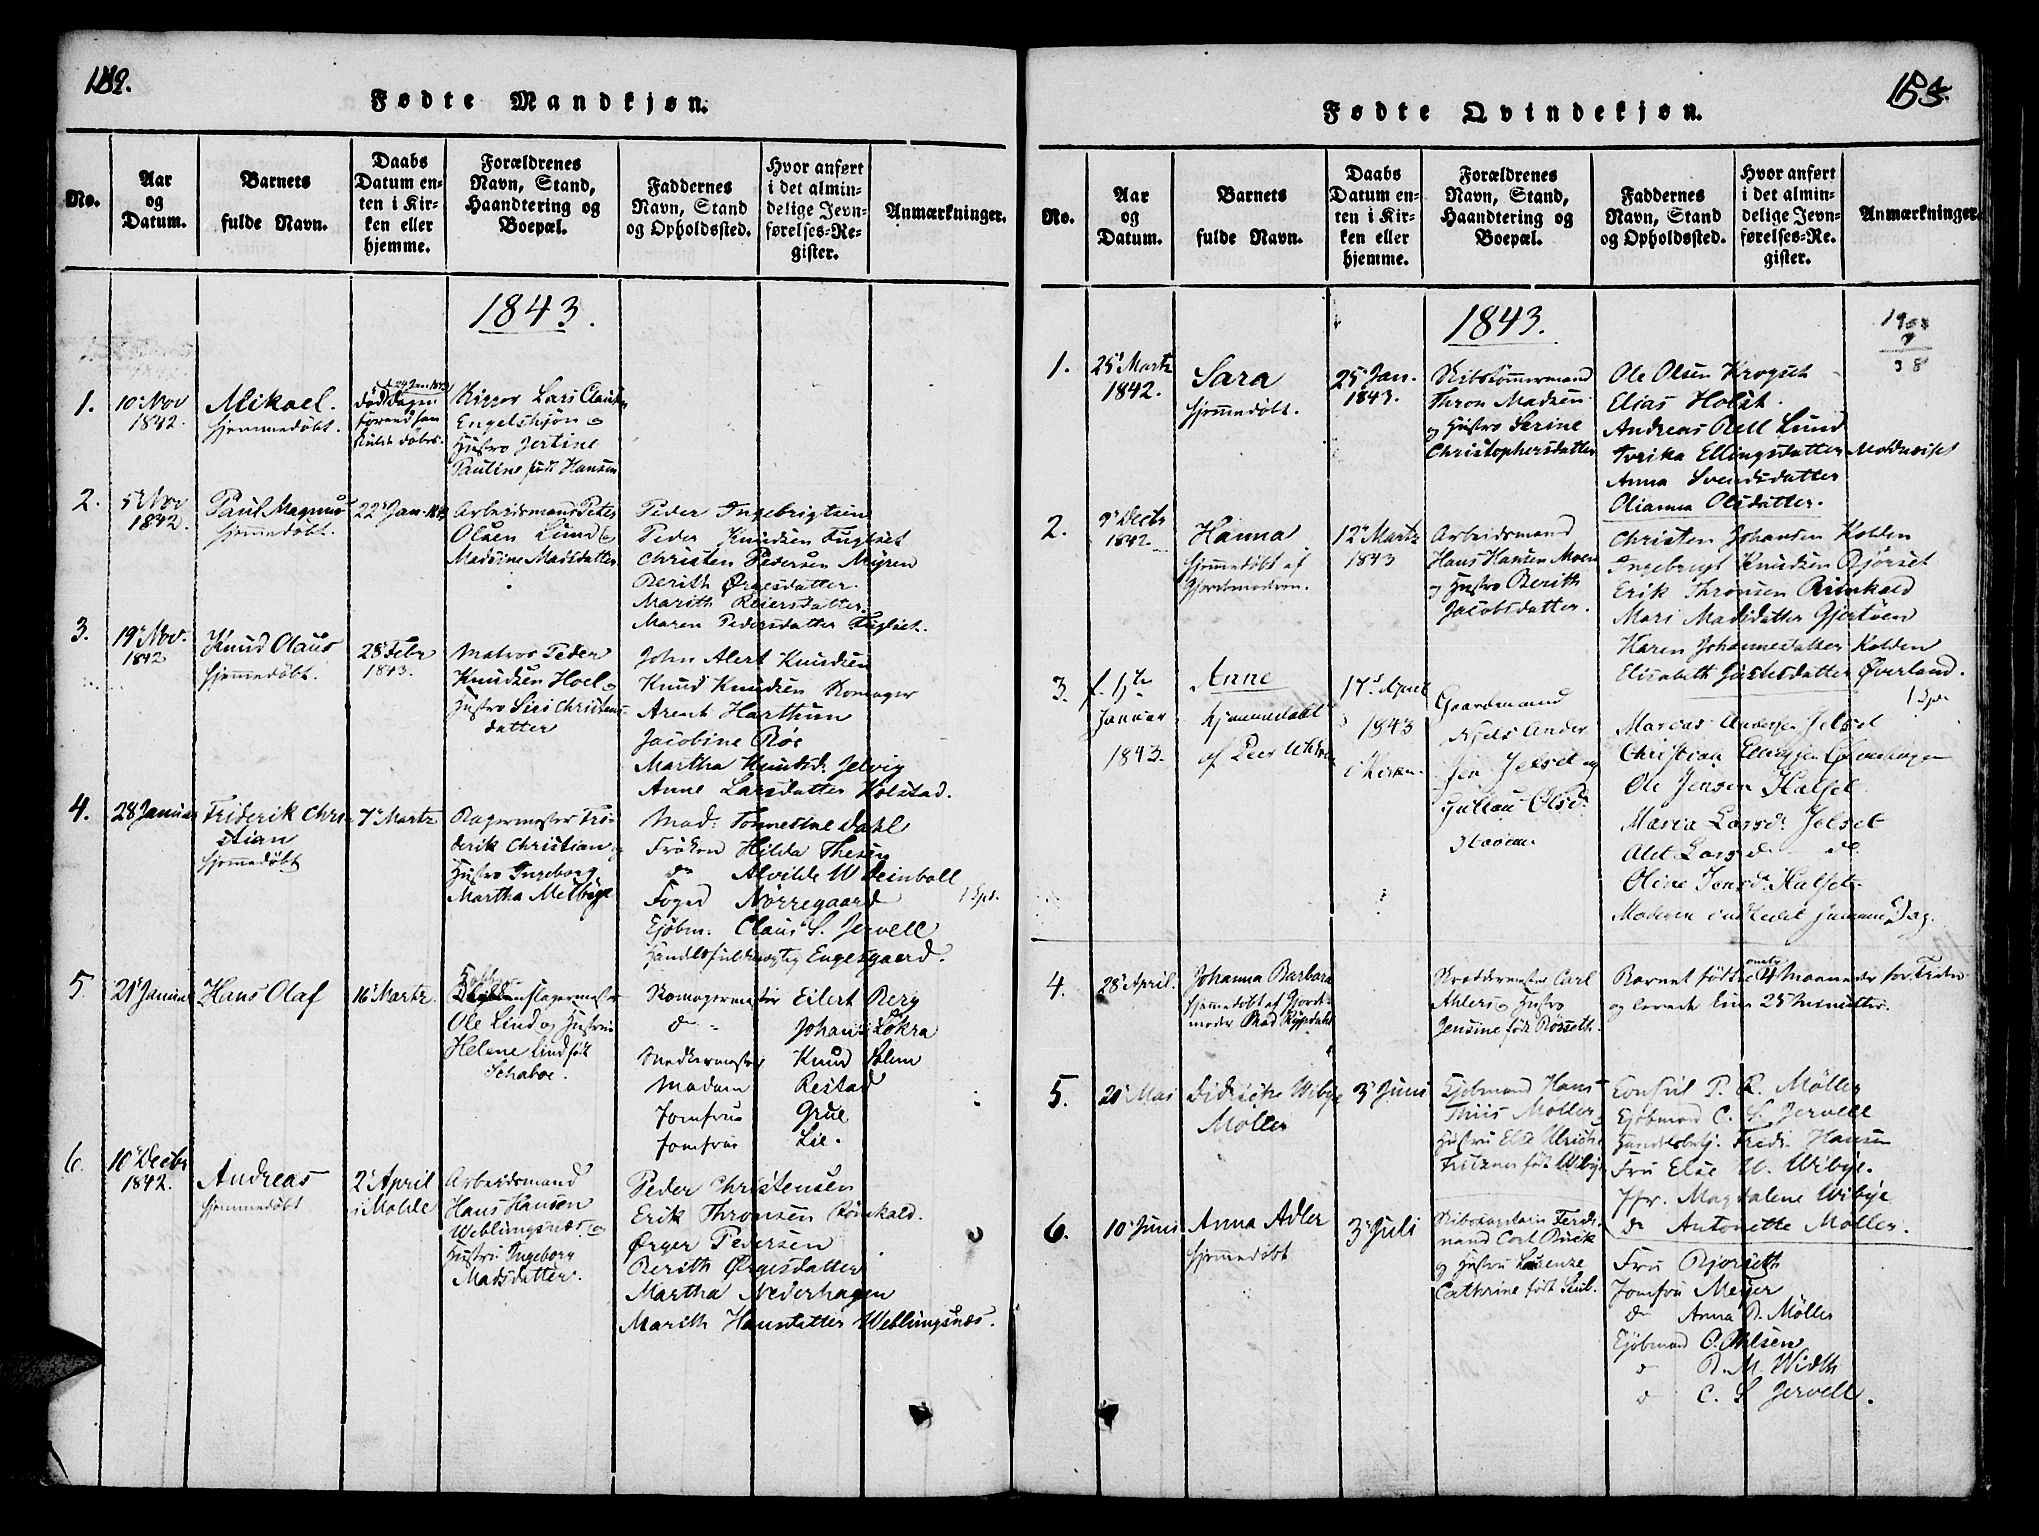 Fødte Mandkjøn.
No.
Aar og Datum.
Barnets fulde Navn.
Daabs Datum enten i Kirken eller hjemme.
Forældrenes Navn, Stand, Haandtering og Boepæl.
Faddernes Navn, Stand og Opholdssted.
Hvor anført i det almindelige Jevnførelses-Register.
Anmærkninger.
1843.
1.
10 Nov
1842.
Mikael.
hjemmedøbt.
Lars
Engelskjøn
Hustro Jertine
Pauline født Hansen
2.
5 Nov
1842.
Paul Magnus
hjemmedøbt.
22 Jan.
Arbeidsmand Peter
Olsen Lund
Madsdatter
Peder Ingebrigtsen
Peder Knudsen Fuglset
Christen Pedersen Myren
Berith Ørgesdatter.
Marith Reiersdatter.
Maren Pedersdatter Fuglset.
3.
19 Nov.
1842
Knud Olaus
hjemmedøbt.
28 Febr
1843.
Matros Peder
Knudsen Hoel
Hustro Siri Christens
datter
John Alert Knudsen
Knud Knudsen
Arent Harthun
Jacobine Røe
Martha Knudsd. Jelvig
Anne Larsdatter Kolstad.
4.
28 Januar
Friderik Chri
stian
hjemmedøbt
7 Martz
Bagermester Fri
derik Christian
Hustro Ingeborg
Martha
Mad: Tonnesine Dahl
Frøken Hilda Thesen
do Alvilde Weinboll
Foged Nørregaard
Kjøbm. Claus S. Jervell
Handelsfuldmægtig Engesgaard.
5.
21 Januar
Hans Olaf
16 Martz
Ole Lind og Hustrue
Helene Lind født
Schaboe.
Eilert Berg
Johan Løkra
Snedkermester Knud Solem
Madam Restad
Jomfrue Grue
Jomfrue Lie.
6.
10 Decbr
1842.
Andreas
hjemmedøbt
2 April
i Molde
Arbeidsmand
Hans Hansen
Weblungsnæs.
Hustru Ingeborg
Madsdatter.
Peder Christensen
Erik Thronsen
Ørger Pedersen
Berith Ørgesdatter
Martha Nederhagen
Marith Hansdatter Weblungsnæs.
Fødte Qvindekjøn.
No.
Aar og Datum.
Barnets fulde Navn.
Daabs Datum enten i Kirken eller hjemme.
Forældrenes Navn, Stand, Haandtering og Boepæl.
Faddernes Navn, Stand og Opholdssted.
Hvor anført i det almindelige Jevnførelses-Register.
Anmærkninger.
1843.
1.
25 Martz
1842.
Sara
hjemmedøbt.
25 Jan.
1843.
Skibstømmermand
Thron Madsen
og Hustro Serine
Christophersdatter
Ole Olsen Krogset
Elias Holst.
Andreas Rell Lund
Ellingsdatter
Anna Svendsdatter
Olianna Olsdatter.
2.
9 Decbr
1842.
Hanna
hjemmedøbt af
Gjordemoderen.
12 Martz
1843
Arbeidsmand
Hans Hansen Moen
og Hustro Berith
Jacobsdatter.
Christen Johansen Kolden
Ingebrigt Knudsen
Erik Thronsen
Mari Madsdatter
Karen Johannesdatter Kolden
Elisabeth Justesdatter Øverland.
3.
Januar
1843.
Anne
hjemmedøbt
17 April
1843
i Kirken
Gaardmand
Niels Ander
sen Jelset og
Olsd.
Marcus Andersen Jelset
Christian
Ole Jensen Halset
Maria Larsd. Jelset
Alet Larsd. do.
Oline Jonsd. Halset
Moderen indledet samme Dag.
4.
28 April.
Johanna Barbara
hjemmedøbt af Gjorde
moder Mad
Skræddermester Carl
Ahlers og Hustro
Jensine født Røsseth.
Barnet født omtr 4 Maaneder for Tiden
og levede kun 25 Minutter.
5.
20 Mai
Didricke Wibye
Møller
3 Juni
Kjøbmand Hans
Thiis Møller
Hustru Else Ulricke
født Wibye
Consul P. R. Møller
Kjøbmand C. S. Jervell
Fredr. Hansen
Fru Else U. Wibye.
Jfr. Magdalene Wibye
do Antonette Møller.
6.
10 Juni
Anna Adler
hjemmedøbt
3 Juli
Skibscaptain Ferdi
nand Carl
og Hustru Laurenze
Cathrine født
Fru Bjørseth
Jomfru Meyer
do Anna R. Møller
Kjøbmand
do R. M. Width
do C. S. Jervell.